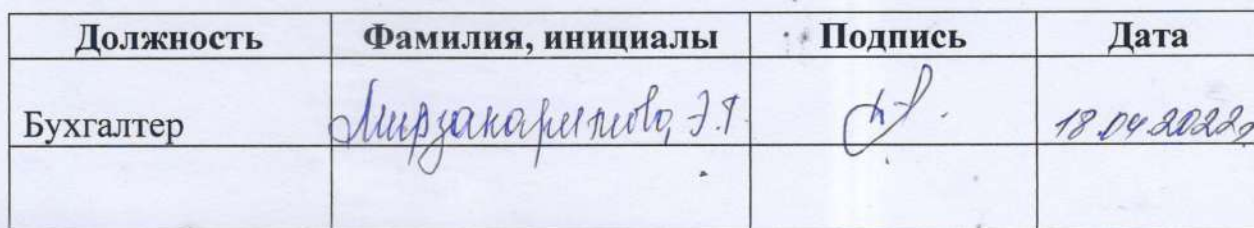 Должность Фамилия, инициалы Подпись Дата
Бухгалтер Мирзакаримова Э.Т. 18.04.2022г